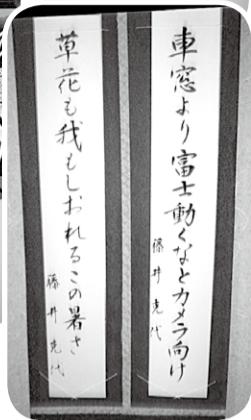 車窓より富士動くなとカメラ向け
藤井克代
草花も我もしおれるこの暑さ
藤井克代